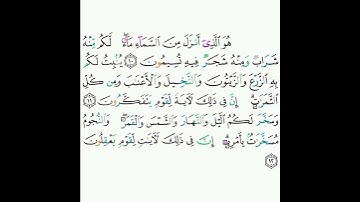 هُوَ الَّذِي أَنزَلَ مِنَ السَّمَاءِ مَاءً ۖ لَّكُم مِّنْهُ
شَرَابٌ وَمِنْهُ شَجَرٌ فِيهِ تُسِيمُونَ ١٠ يُنبِتُ لَكُم
بِهِ الزَّرْعَ وَالزَّيْتُونَ وَالنَّخِيلَ وَالْأَعْنَابَ وَمِن كُلِّ
الثَّمَرَاتِ ۗ إِنَّ فِي ذَٰلِكَ لَآيَةً لِّقَوْمٍ يَتَفَكَّرُونَ ١١
وَسَخَّرَ لَكُمُ اللَّيْلَ وَالنَّهَارَ وَالشَّمْسَ وَالْقَمَرَ ۖ وَالنُّجُومُ
مُسَخَّرَاتٌ بِأَمْرِهِ ۗ إِنَّ فِي ذَٰلِكَ لَآيَاتٍ لِّقَوْمٍ يَعْقِلُونَ ١٢